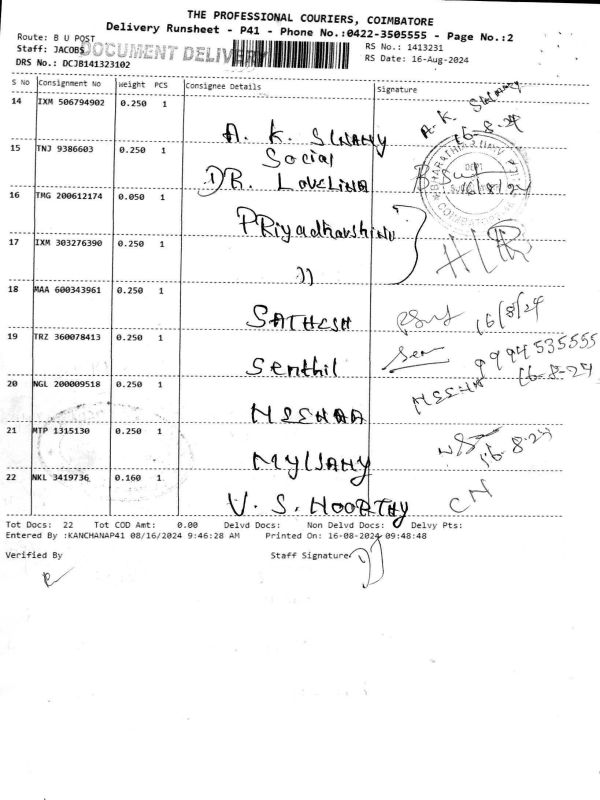 THE PROFESSIONAL COURIERS, COIMBATORE
Delivery Runsheet - P41 - Phone No.:0422-3505555 - Page No.:2
Route: B U POST
RS No.: 1413231
Staff: JACOBS
DOCUMENT DELIVERY
RS Date: 16-Aug-2024
DRS No.: DCJB141323102
S No Consignment No Weight PCS Consignee Details Signature
14 IXM 506794902 0.250 1
A. K. SWAMY
A. K. Swamy
16-8-24
15 TNJ 9386603 0.250 1
Social
DR. LOVELINA
16/8/24
16 TMG 200612174 0.050 1
PRiyadharshini
17 IXM 303276390 0.250 1
))
18 MAA 600343961 0.250 1
SATHESH
16/8/24
19 TRZ 360078413 0.250 1
Senthil
Sen
9994535555
20 NGL 200009518 0.250 1
MEEHAA
MEEHA 16-8-24
21 MTP 1315130 0.250 1
MYLSAMY
16-8-24
22 NKL 3419736 0.160 1
V. S. MOORTHY
CN
Tot Docs: 22 Tot COD Amt: 0.00 Delvd Docs: Non Delvd Docs: Delvy Pts:
Entered By :KANCHANAP41 08/16/2024 9:46:28 AM Printed On: 16-08-2024 09:48:48
Verified By Staff Signature